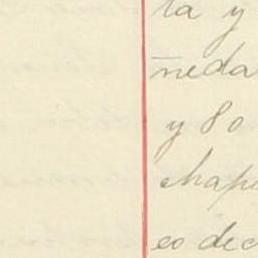 ta y
ñeda
y 80
chap
eo dec